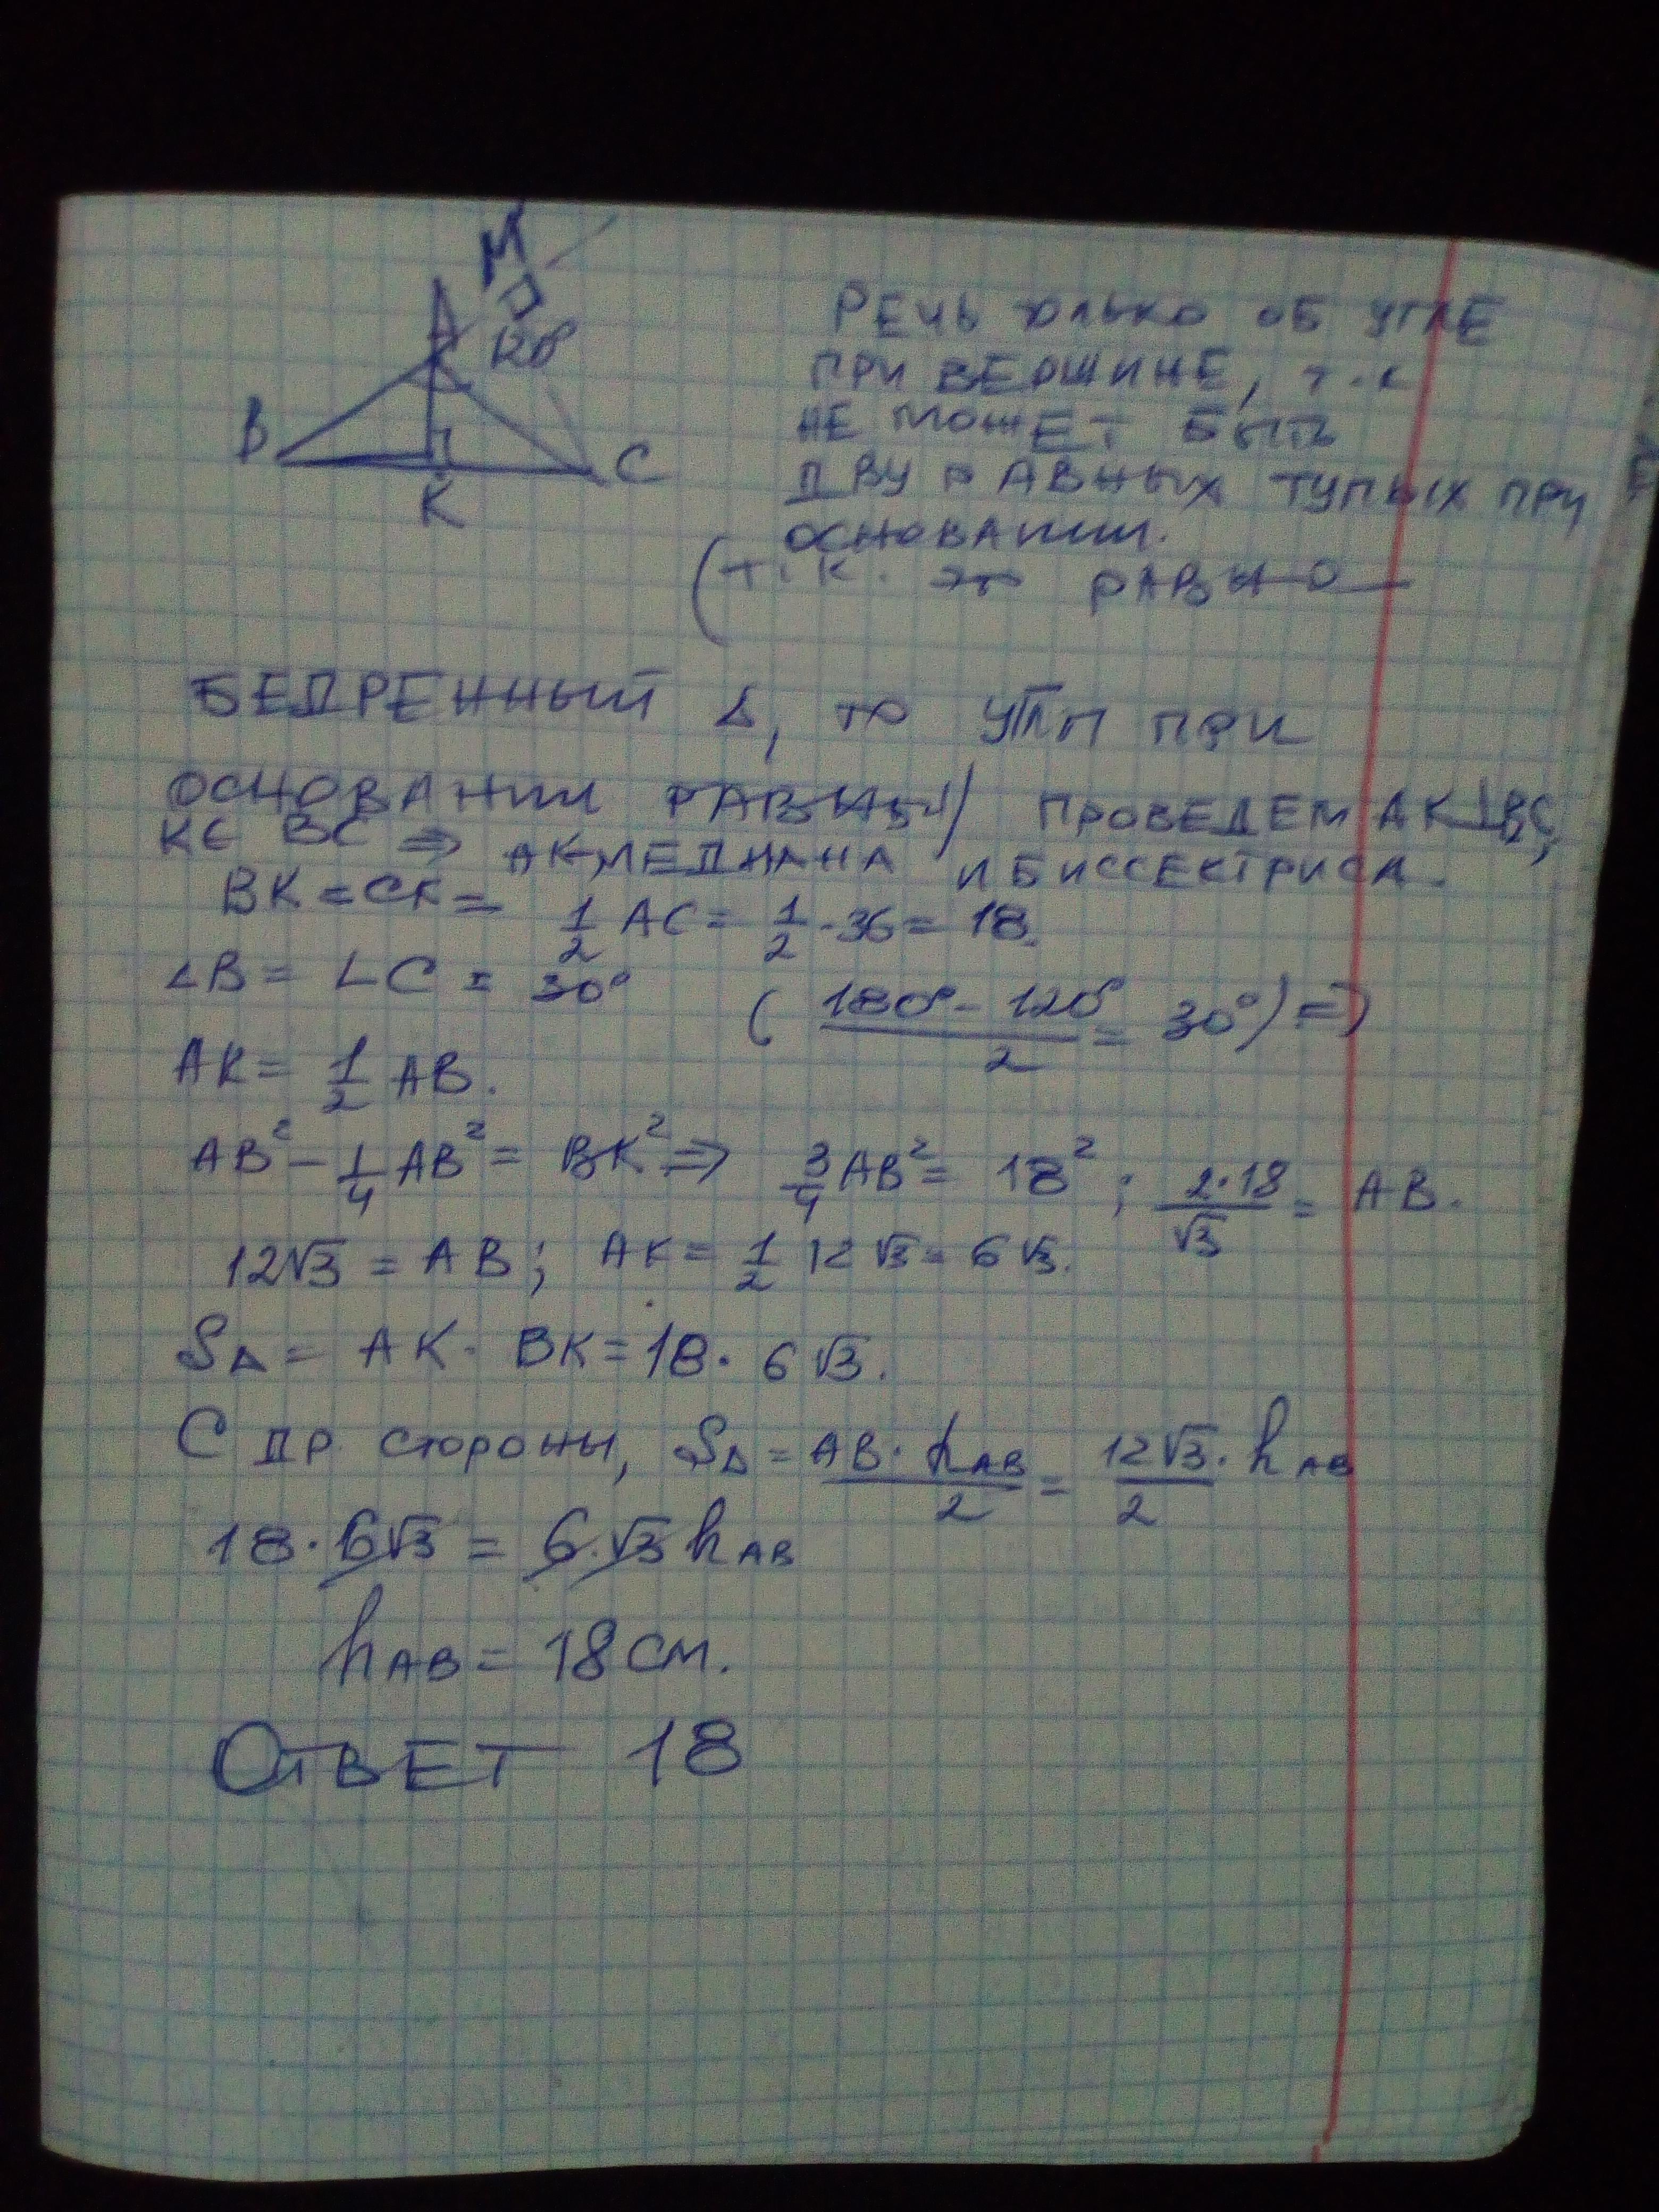 М
А
120°
В
С
К
РЕЧЬ ТОЛЬКО ОБ УГЛЕ
ПРИ ВЕРШИНЕ, Т.К
НЕ МОЖЕТ БЫТЬ
ДВУ РАВНЫХ ТУПЫХ ПРИ
ОСНОВАНИИ.
(Т.К. ЭТО РАВНО
БЕДРЕННЫЙ Δ, ТО УГЛЫ ПРИ
ОСНОВАНИИ РАВНЫ) ПРОВЕДЕМ АК⊥ВС,
К∈ ВС ⇒ АК-МЕДИАНА И БИССЕКТРИСА.
ВК = СК = 1/2 АС = 1/2 · 36 = 18.
∠В = ∠С = 30° ( (180° - 120°)/2 = 30° ) ⇒
АК = 1/2 АВ.
АВ² - 1/4 АВ² = ВК² ⇒ 3/4 АВ² = 18² ; 2·18/√3 = АВ.
12√3 = АВ; АК = 1/2 12√3 = 6√3.
S△ = АК · ВК = 18 · 6√3.
С ДР. СТОРОНЫ, S△ = АВ · hАВ/2 = 12√3/2 · hАВ
18 · 6√3 = 6·√3 hАВ
hАВ = 18 СМ.
ОТВЕТ 18